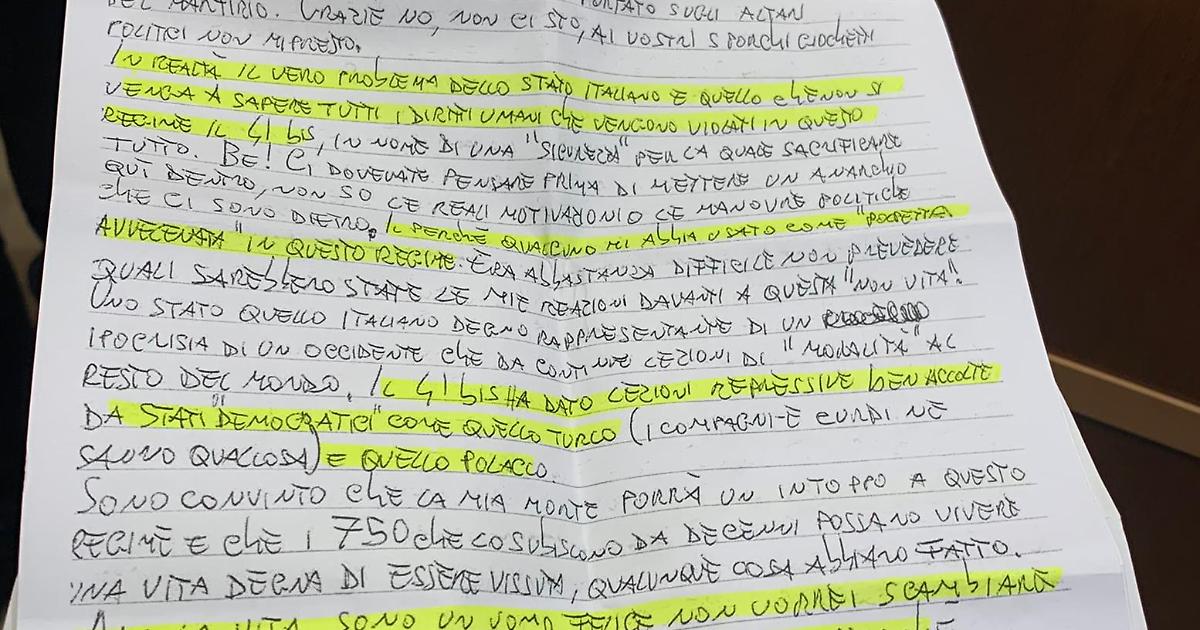 DEL MARTIRIO. GRAZIE NO, NON CI STO, AI VOSTRI SPORCHI GIOCHETTI
PORTATO SUGLI ALTARI
POLITICI NON MI PRESTO.
IN REALTÀ IL VERO PROBLEMA DELLO STATO ITALIANO È QUELLO CHE NON SI
VENGA A SAPERE TUTTI I DIRITTI UMANI CHE VENGONO VIOLATI IN QUESTO
REGIME IL 41 bis, IN NOME DI UNA "SICUREZZA" PER LA QUALE SACRIFICARE
TUTTO. BE! CI DOVEVATE PENSARE PRIMA DI METTERE UN ANARCHIO
QUI DENTRO, NON SO LE REALI MOTIVAZIONI O LE MANOVRE POLITICHE
CHE CI SONO DIETRO. IL PERCHÈ QUALCUNO MI ABBIA USATO COME "POLPETTA
AVVELENATA" IN QUESTO REGIME. ERA ABBASTANZA DIFFICILE NON PREVEDERE
QUALI SAREBBERO STATE LE MIE REAZIONI DAVANTI A QUESTA "NON VITA".
UNO STATO QUELLO ITALIANO DEGNO RAPPRESENTANTE DI UN
IPOCRISIA DI UN OCCIDENTE CHE DA CONTINUE LEZIONI DI "MODALITÀ" AL
RESTO DEL MONDO. IL 41 bis HA DATO LEZIONI REPRESSIVE BEN ACCOLTE
DA STATI "DEMOCRATICI" COME QUELLO TURCO (I COMPAGNI-E CURDI NE
SANNO QUALCOSA) E QUELLO POLACCO.
SONO CONVINTO CHE LA MIA MORTE PORRÀ UN INTOPPO A QUESTO
REGIME E CHE I 750 CHE LO SUBISCONO DA DECENNI POSSANO VIVERE
UNA VITA DEGNA DI ESSERE VISSUTA, QUALUNQUE COSA ABBIANO FATTO.
VITA SONO UN UOMO FELICE NON VORREI SCAMBIARE